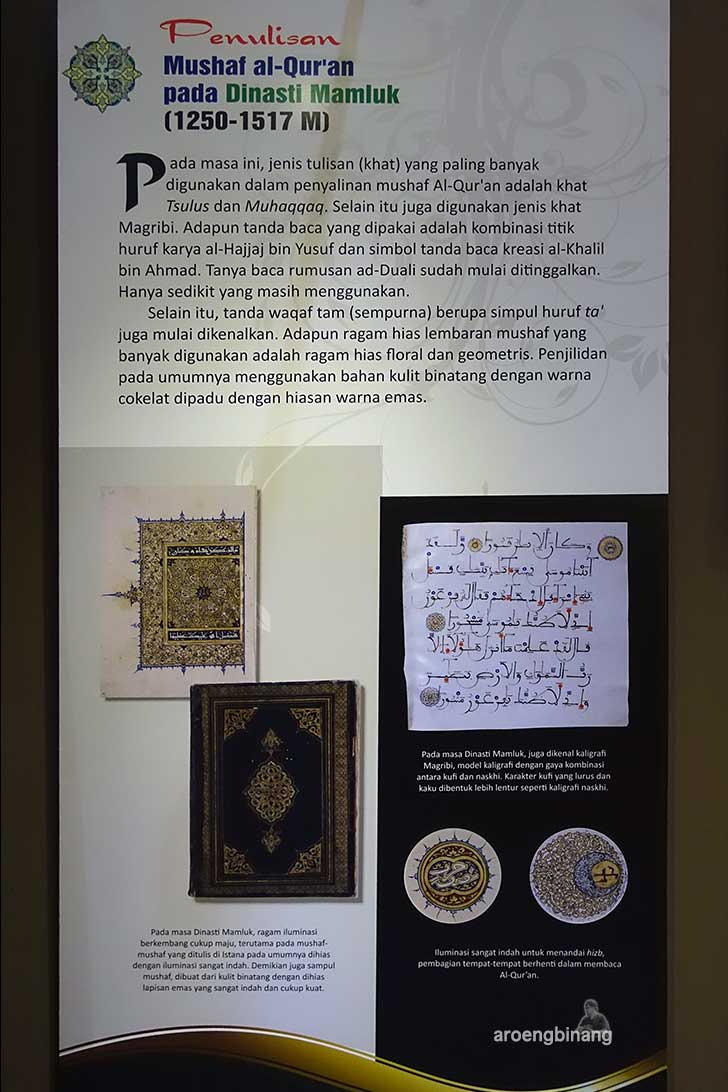 Penulisan
Mushaf al-Qur'an
pada Dinasti Mamluk
(1250-1517 M)
Pada masa ini, jenis tulisan (khat) yang paling banyak
digunakan dalam penyalinan mushaf Al-Qur'an adalah khat
Tsulus dan Muhaqqaq. Selain itu juga digunakan jenis khat
Magribi. Adapun tanda baca yang dipakai adalah kombinasi titik
huruf karya al-Hajjaj bin Yusuf dan simbol tanda baca kreasi al-Khalil
bin Ahmad. Tanya baca rumusan ad-Duali sudah mulai ditinggalkan.
Hanya sedikit yang masih menggunakan.
Selain itu, tanda waqaf tam (sempurna) berupa simpul huruf ta'
juga mulai dikenalkan. Adapun ragam hias lembaran mushaf yang
banyak digunakan adalah ragam hias floral dan geometris. Penjilidan
pada umumnya menggunakan bahan kulit binatang dengan warna
cokelat dipadu dengan hiasan warna emas.
Pada masa Dinasti Mamluk, ragam iluminasi
berkembang cukup maju, terutama pada mushaf-
mushaf yang ditulis di Istana pada umumnya dihias
dengan iluminasi sangat indah. Demikian juga sampul
mushaf, dibuat dari kulit binatang dengan dihias
lapisan emas yang sangat indah dan cukup kuat.
Pada masa Dinasti Mamluk, juga dikenal kaligrafi
Magribi, model kaligrafi dengan gaya kombinasi
antara kufi dan naskhi. Karakter kufi yang lurus dan
kaku dibentuk lebih lentur seperti kaligrafi naskhi.
Iluminasi sangat indah untuk menandai hizb,
pembagian tempat-tempat berhenti dalam membaca
Al-Qur'an.
aroengbinang